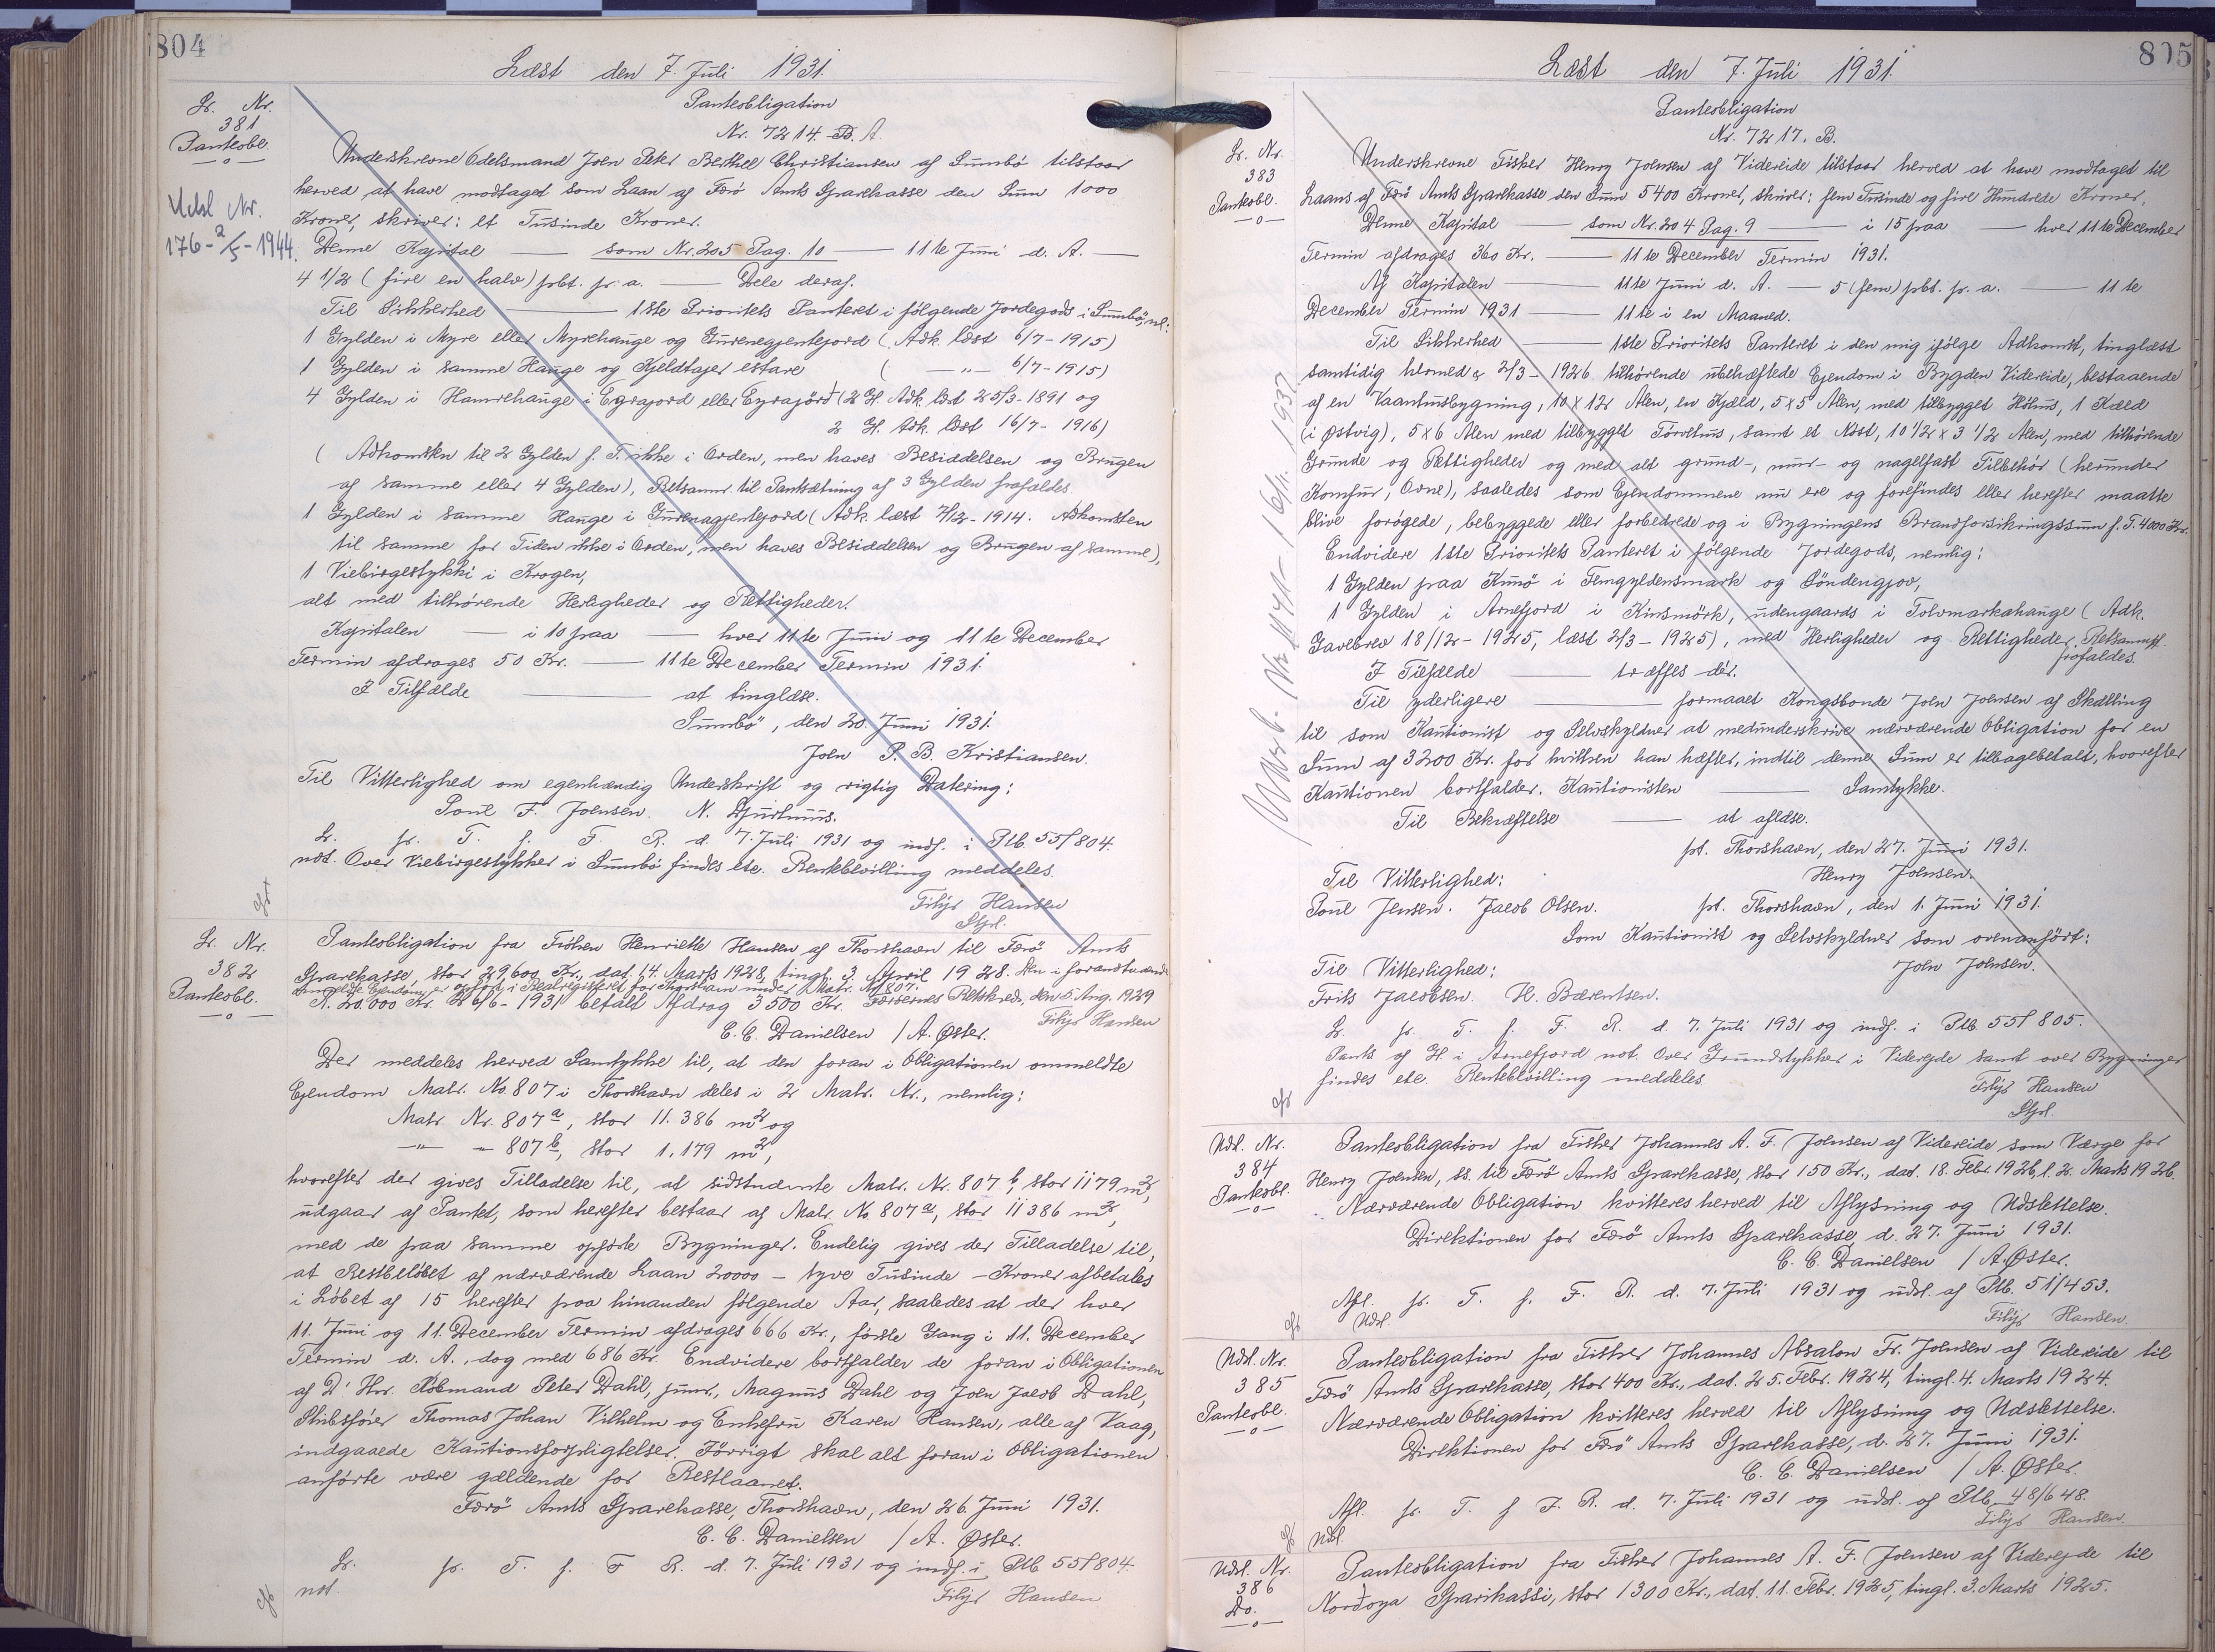 804
Læst den 7. Juli 1931.
Lr. Nr.
381
Panteobl.
Udsl Nr.
176-2/5-1944.
Panteobligation
Nr. 7214. B. A.
Underskrevne Odelsmand Joen Peter Berthel Christiansen af Sumbö tilstaar
herved at have modtaget som Laan af Færö Amts Sparekasse den Sum 1000
Kroner, skriver: et Tusinde Kroner.
Denne Kapital — som Nr. 205 Pag. 10 — 11te Juni d. A. —
4 1/2 (fire en halv) pct. pr. a. — Dele deraf.
Til Sikkerhed — 1ste Prioritets Panteret i følgende Jordegods i Sumbö, nl:
1 Gylden i Myre eller Myrehauge og Gurenegjentejord (Adk. læst 6/7-1915)
1 Gylden i samme Hauge og Kjeldtajer estare ( —"— 6/7-1915)
4 Gylden i Hamrehauge i Egrajord eller Eyrajörd (2 G. Adk. læst 25/3-1891 og
2 G. Adk. læst 16/7-1916)
(Adkomsten til 2 Gylden f. T. ikke i Orden, men haves Besiddelsen og Brugen
af samme eller 4 Gylden), Retsanm. til Pantsætning af 3 Gylden frafaldes.
1 Gylden i samme Hauge i Gurenagjentejord (Adk. læst 7/12-1914. Adkomsten
til samme for Tiden ikke i Orden, men haves Besiddelsen og Brugen af samme),
1 Viebirgestykki i Krogen,
alt med tilhørende Herligheder og Rettigheder.
Kapitalen — i 10 paa — hver 11te Juni og 11te December
Termin afdrages 50 Kr. — 11te December Termin 1931.
I Tilfælde — at tinglæse.
Sumbö, den 20. Juni 1931.
Joen P. B. Kristiansen.
Til Vitterlighed om egenhændig Underskrift og rigtig Datering:
Poul F. Joensen. N. Djurhuus.
Lr. fr. T. f. F. R. d. 7. Juli 1931 og indf. i Ptb. 55/804.
not. Over Viebirgestykker i Sumbö findes ete. Rentebevilling meddeles.
Filip Hansen
Stpl.
Lr. Nr.
382
Panteobl.
Panteobligation fra Frøken Henriette Hansen af Thorshavn til Færö Amts
Sparekasse, stor 29,600 Kr., dat. 14. Marts 1928, tingl. 3. April 1928. Den i foranstaaende
ommeldte Ejendom er opført i Realregisteret for Thorshavn under Matr. Nr. 807.
R. 20.000 Kr. 26/6-1931 betalt Afdrag 3500 Kr. Færøernes Retskreds, den 5. Aug. 1929
Filip Hansen
C. C. Danielsen / A. Øster.
Der meddeles herved Samtykke til, at den foran i Obligationen ommeldte
Ejendom Matr. No. 807 i Thorshavn deles i 2 Matr. Nr., nemlig:
Matr. Nr. 807a, stor 11.386 m2 og
—"— " 807b, stor 1.179 m2,
hvorefter der gives Tilladelse til, at sidstnævnte Matr. Nr. 807b, stor 1179 m2,
udgaar af Pantet, som herefter bestaar af Matr. No 807a, stor 11386 m2,
med de paa samme opførte Bygninger. Endelig gives der Tilladelse til,
at Restbeløbet af nærværende Laan 20000 - tyve Tusinde - Kroner afbetales
i Løbet af 15 herefter paa hinanden følgende Aar, saaledes at der hver
11. Juni og 11. December Termin afdrages 666 Kr., første Gang i 11. December
Termin d. A., dog med 686 Kr. Endvidere bortfalder de foran i Obligationen
af D' Hrr. Købmand Peter Dahl, junr., Magnus Dahl og Joen Jacob Dahl,
Skibsfører Thomas Johan Vilhelm og Enkefru Karen Hansen, alle af Vaag,
indgaaede Kautionsforpligtelser. Forrigt skal alt foran i Obligationen
anførte være gældende for Restlaanet.
Færö Amts Sparekasse, Thorshavn, den 26. Juni 1931.
C. C. Danielsen / A. Øster.
Lr. fr. T. f. F. R. d. 7. Juli 1931 og indf. i Ptb 55/804.
not.
Filip Hansen
805
Læst den 7. Juli 1931.
Lr. Nr.
383
Panteobl.
Panteobligation
Nr. 7217. B.
Underskrevne Fisker Henry Joensen af Videreide tilstaar herved at have modtaget til
Laans af Færö Amts Sparekasse den Sum 5400 Kroner, skriver: fem Tusinde og fire Hundrede Kroner.
Denne Kapital — som Nr. 204 Pag. 9 — i 15 paa — hver 11te December
Termin afdrages 360 Kr. — 11te December Termin 1931.
Af Kapitalen — 11te Juni d. A. — 5 (fem) pct. pr. a. — 11te
December Termin 1931 — 11te i en Maaned.
Til Sikkerhed — 1ste Prioritets Panteret i den mig ifølge Adkomst, tinglæst
samtidig hermed & 2/3-1926 tilhørende ubehæftede Ejendom i Bygden Videreide, bestaaende
af en Vaaningsbygning, 10 x 12 Alen, en Kjæld, 5 x 5 Alen, med tilbygget Höhus, 1 Kæld
(i Østvig), 5 x 6 Alen med tilbygget Törvehus, samt et Nöst, 10 1/2 x 3 1/2 Alen, med tilhørende
Grunde og Rettigheder og med alt grund-, mur- og nagelfast Tilbehör (herunder
Komfur, Ovne), saaledes som Ejendommene nu ere og forefindes eller herefter maatte
blive forøgede, bebyggede eller forbedrede og i Bygningens Brandforsikringssum f. T. 4000 Kr.
Endvidere 1ste Prioritets Panteret i følgende Jordegods, nemlig:
1 Gylden paa Kunö i Femgyldensmark og Söndengjov,
1 Gylden i Arnefjord i Kinsmörk, udengaards i Tolvmarkahauge (Adk.
Gavebrev 18/12-1925, læst 2/3-1925), med Herligheder og Rettigheder. Retsanmf.
frafaldes.
I Tilfælde — træffes der.
Til yderligere — formaaet Kongsbonde Joen Joensen af Skælling
til som Kautionist og Selvskyldner at medunderskrive nærværende Obligation for en
Sum af 3200 Kr. for hvilken han hæfter, indtil denne Sum er tilbagebetalt, hvorefter
Kautionen bortfalder. Kautionisten — Samtykke.
Til Bekræftelse — at aflæse.
pt. Thorshavn, den 27. Juni 1931.
Til Vitterlighed:
Henry Joensen.
Poul Jensen. Jacob Olsen.
pt. Thorshavn, den 1. Juni 1931.
Som Kautionist og Selvskyldner som ovenanført:
Til Vitterlighed:
Joen Joensen.
Frits Jacobsen. H. Bærentsen.
Lr. fr. T. f. F. R. d. 7. Juli 1931 og indf. i Ptb 55/805.
Pants af G. i Arnefjord not. Over Grundstykker i Viderejde samt over Bygninger
findes ete. Rentebevilling meddeles
Filip Hansen
Stpl.
Udsl. Nr.
384
Panteobl.
Panteobligation fra Fisker Johannes A. F. Joensen af Videreide som Værge for
Henry Joensen, ss. til Færö Amts Sparekasse, stor 150 Kr., dat. 18. Febr. 1926, l. 2. Marts 1926.
Nærværende Obligation kvitteres herved til Aflysning og Udslettelse.
Direktionen for Færö Amts Sparekasse, d. 27. Juni 1931.
C. C. Danielsen / A. Øster.
Afl. fr. T. f. F. R. d. 7. Juli 1931 og udsl. af Ptb. 51/453.
Udsl.
Filip Hansen.
Udsl. Nr.
385
Panteobl.
Panteobligation fra Fisker Johannes Absalon Fr. Joensen af Videreide til
Færö Amts Sparekasse, stor 400 Kr., dat. 25. Febr. 1924, tingl. 4. Marts 1924.
Nærværende Obligation kvitteres herved til Aflysning og Udslettelse.
Direktionen for Færö Amts Sparekasse, d. 27. Juni 1931.
C. C. Danielsen / A. Øster.
Afl. fr. T. f. F. R. d. 7. Juli 1931 og udsl. af Ptb. 48/648.
Udsl.
Filip Hansen.
Udsl. Nr.
386
Do.
Panteobligation fra Fisker Johannes A. F. Joensen af Viderejde til
Nordoya Sparikassi, stor 1300 Kr., dat. 11. Febr. 1925, tingl. 3. Marts 1925.